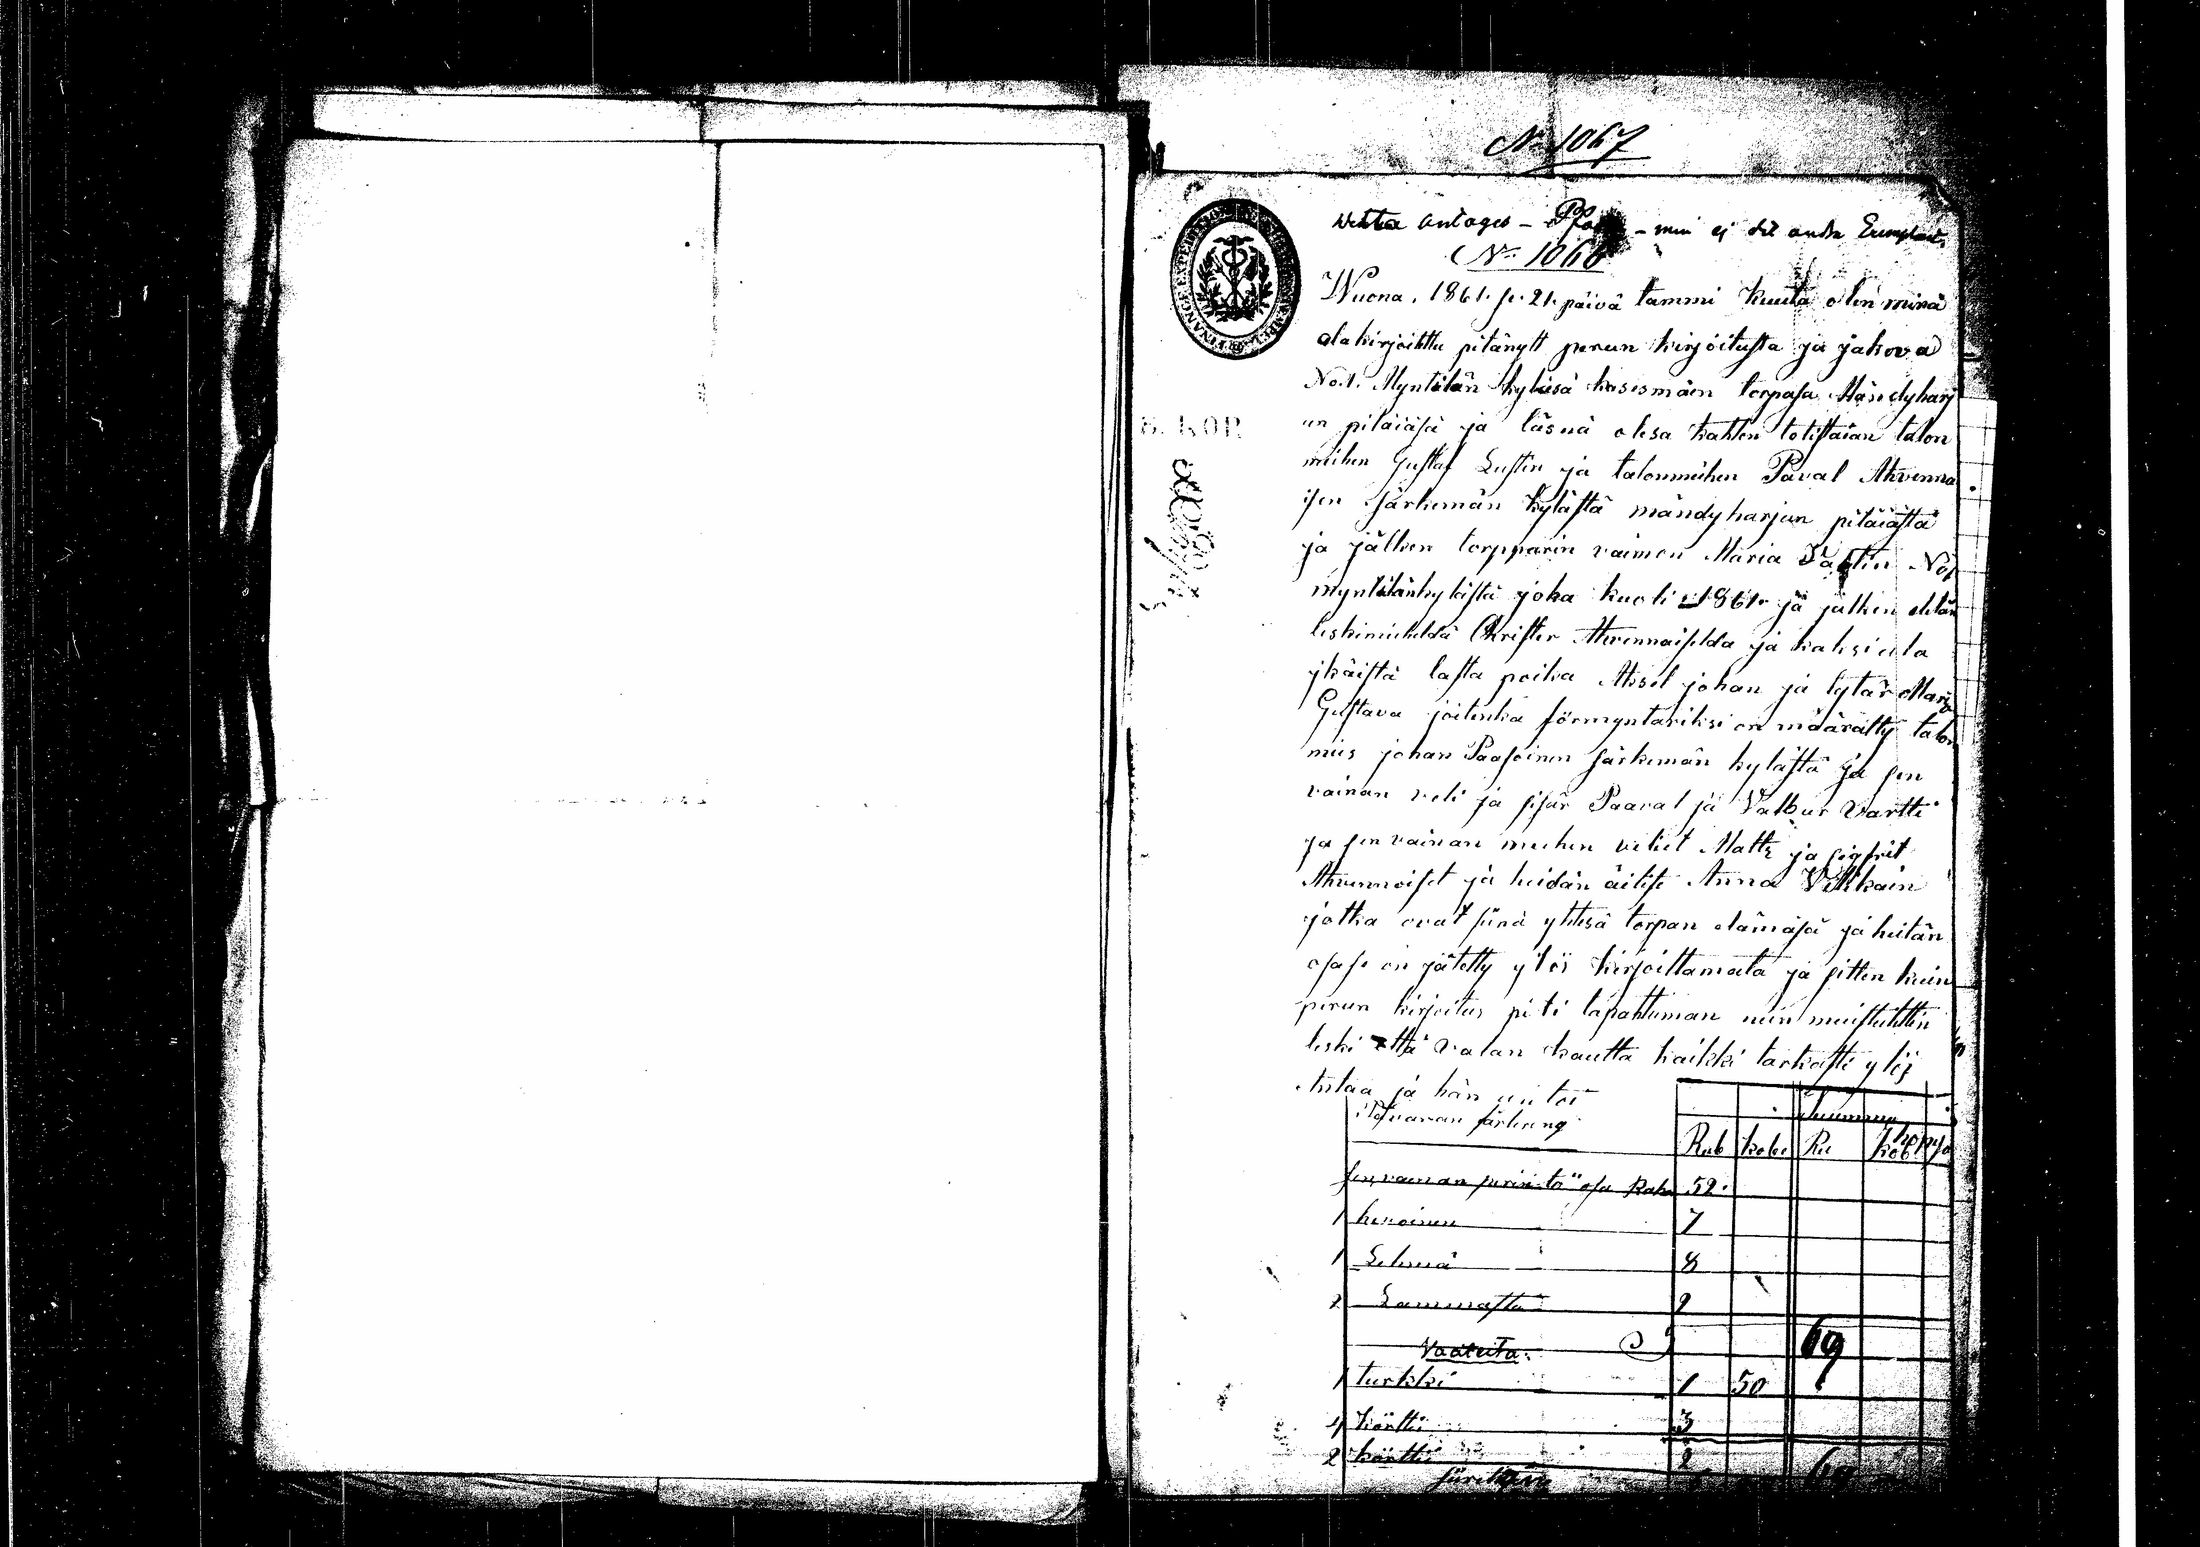 No 1067
antages - - min ej det andra
No 1066
Wuona 1861. se. 21. päivä tammi kuuta olen minä
alakirjoitettu pitänytt perun kirjoitusta ja jakova
No.1. Myntilän kyläsä torpasa Mändyharj
un pitäiäsä ja läsnä olesa kahten totistaian talon
miihen Gustaf Lustin ja talonmiihen Paval Ahvenna
isen särkemän kylästä mändyharjun pitäiästä
ja jälken torpparin vaimon Maria No1
myntilänkylästä joka kuoli 1861. ja jälken
leskimieheldä Krister Ahvennaiselda ja kaksi ala
jkäistä lasta poika Aksel johan ja tytär Maria
Gustava joitenka förmyntäriksi on määrätty talon
mies johan Paasoinen särkemän kylästä ja sen
vainan veli ja sisar Paaval ja Valbur Vartti
ja sen vainan miehen veliet Matts ja sigfrit
Ahvennoiset ja heidän äitise Anna
jotka ovat siinä yhtesä torpan elämäsä ja heitän
osase on jätetty ylös kirjoittamata ja sitten kuin
perun kirjoitus piti tapahtuman niin muistutettin
leski että valan kautta kaikki tarkasti ylös
Antaa ja hän
Summa
Rub kobe Ru kob
sen vainan osa Raha 52
1 hevoinen 7
1 Lehmä 8
2 Lammasta 2
69
Vaateita
1 turkki 1 50
4 körtti 3
2 körtti 2
69